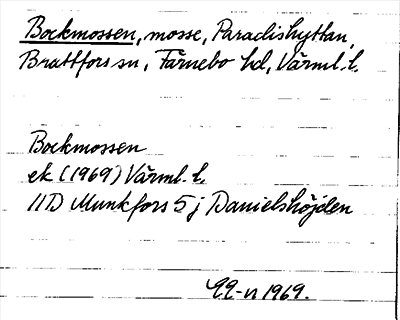 Bockmossen, mosse, Paradishyttan,
Brattfors sn, Färnebo hd, Värml. l.
Bockmossen
ek (1969) Värml. l.
11D Munkfors 5 j Danielshöjden
1969.